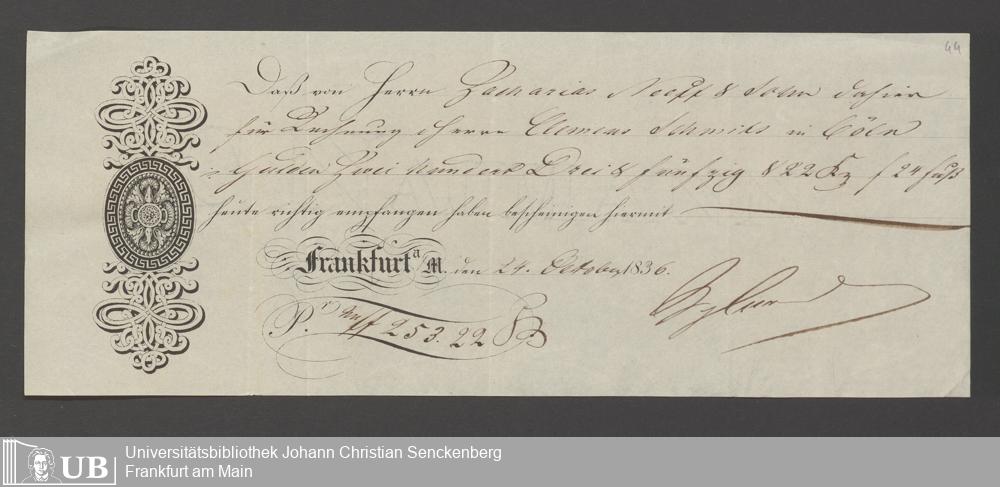 44
Daß von Herrn Zacharias & Sohn dahier
für Rechnung Herrn Clemens Schmidts in Cöln
Gulden Zwei hundert Drei & fünfzig & 22 Xr f 24 fuß
heute richtig empfangen haben bescheinigen hiermit
Frankfurt a M. den 24. October 1836.
Pr. 253.22
UB
Universitätsbibliothek Johann Christian Senckenberg
Frankfurt am Main